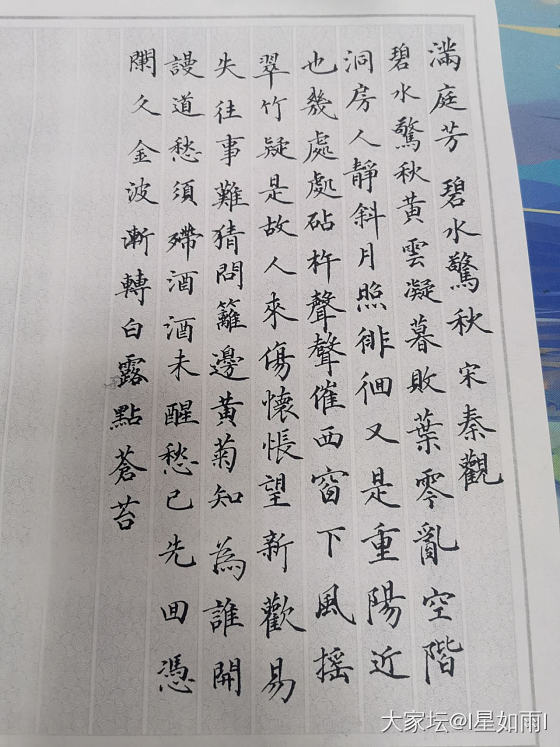 滿庭芳 碧水驚秋 宋秦觀
碧水驚秋黃雲凝暮敗葉零亂空階
洞房人靜斜月照徘徊又是重陽近
也幾處處砧杵聲聲催西窗下風搖
翠竹疑是故人來傷懷悵望新歡易
失往事難猜問籬邊黃菊知為誰開
謾道愁須殢酒酒未醒愁已先回憑
闌久金波漸轉白露點蒼苔
大家坛@I星如雨I